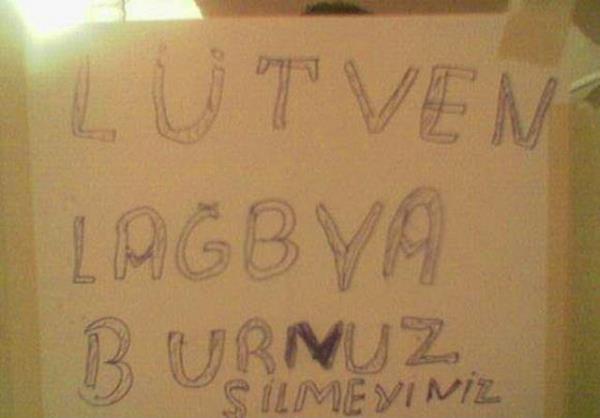 LÜTVEN
LAĞBYA
BURNUZ
SİLMEYİNİZ